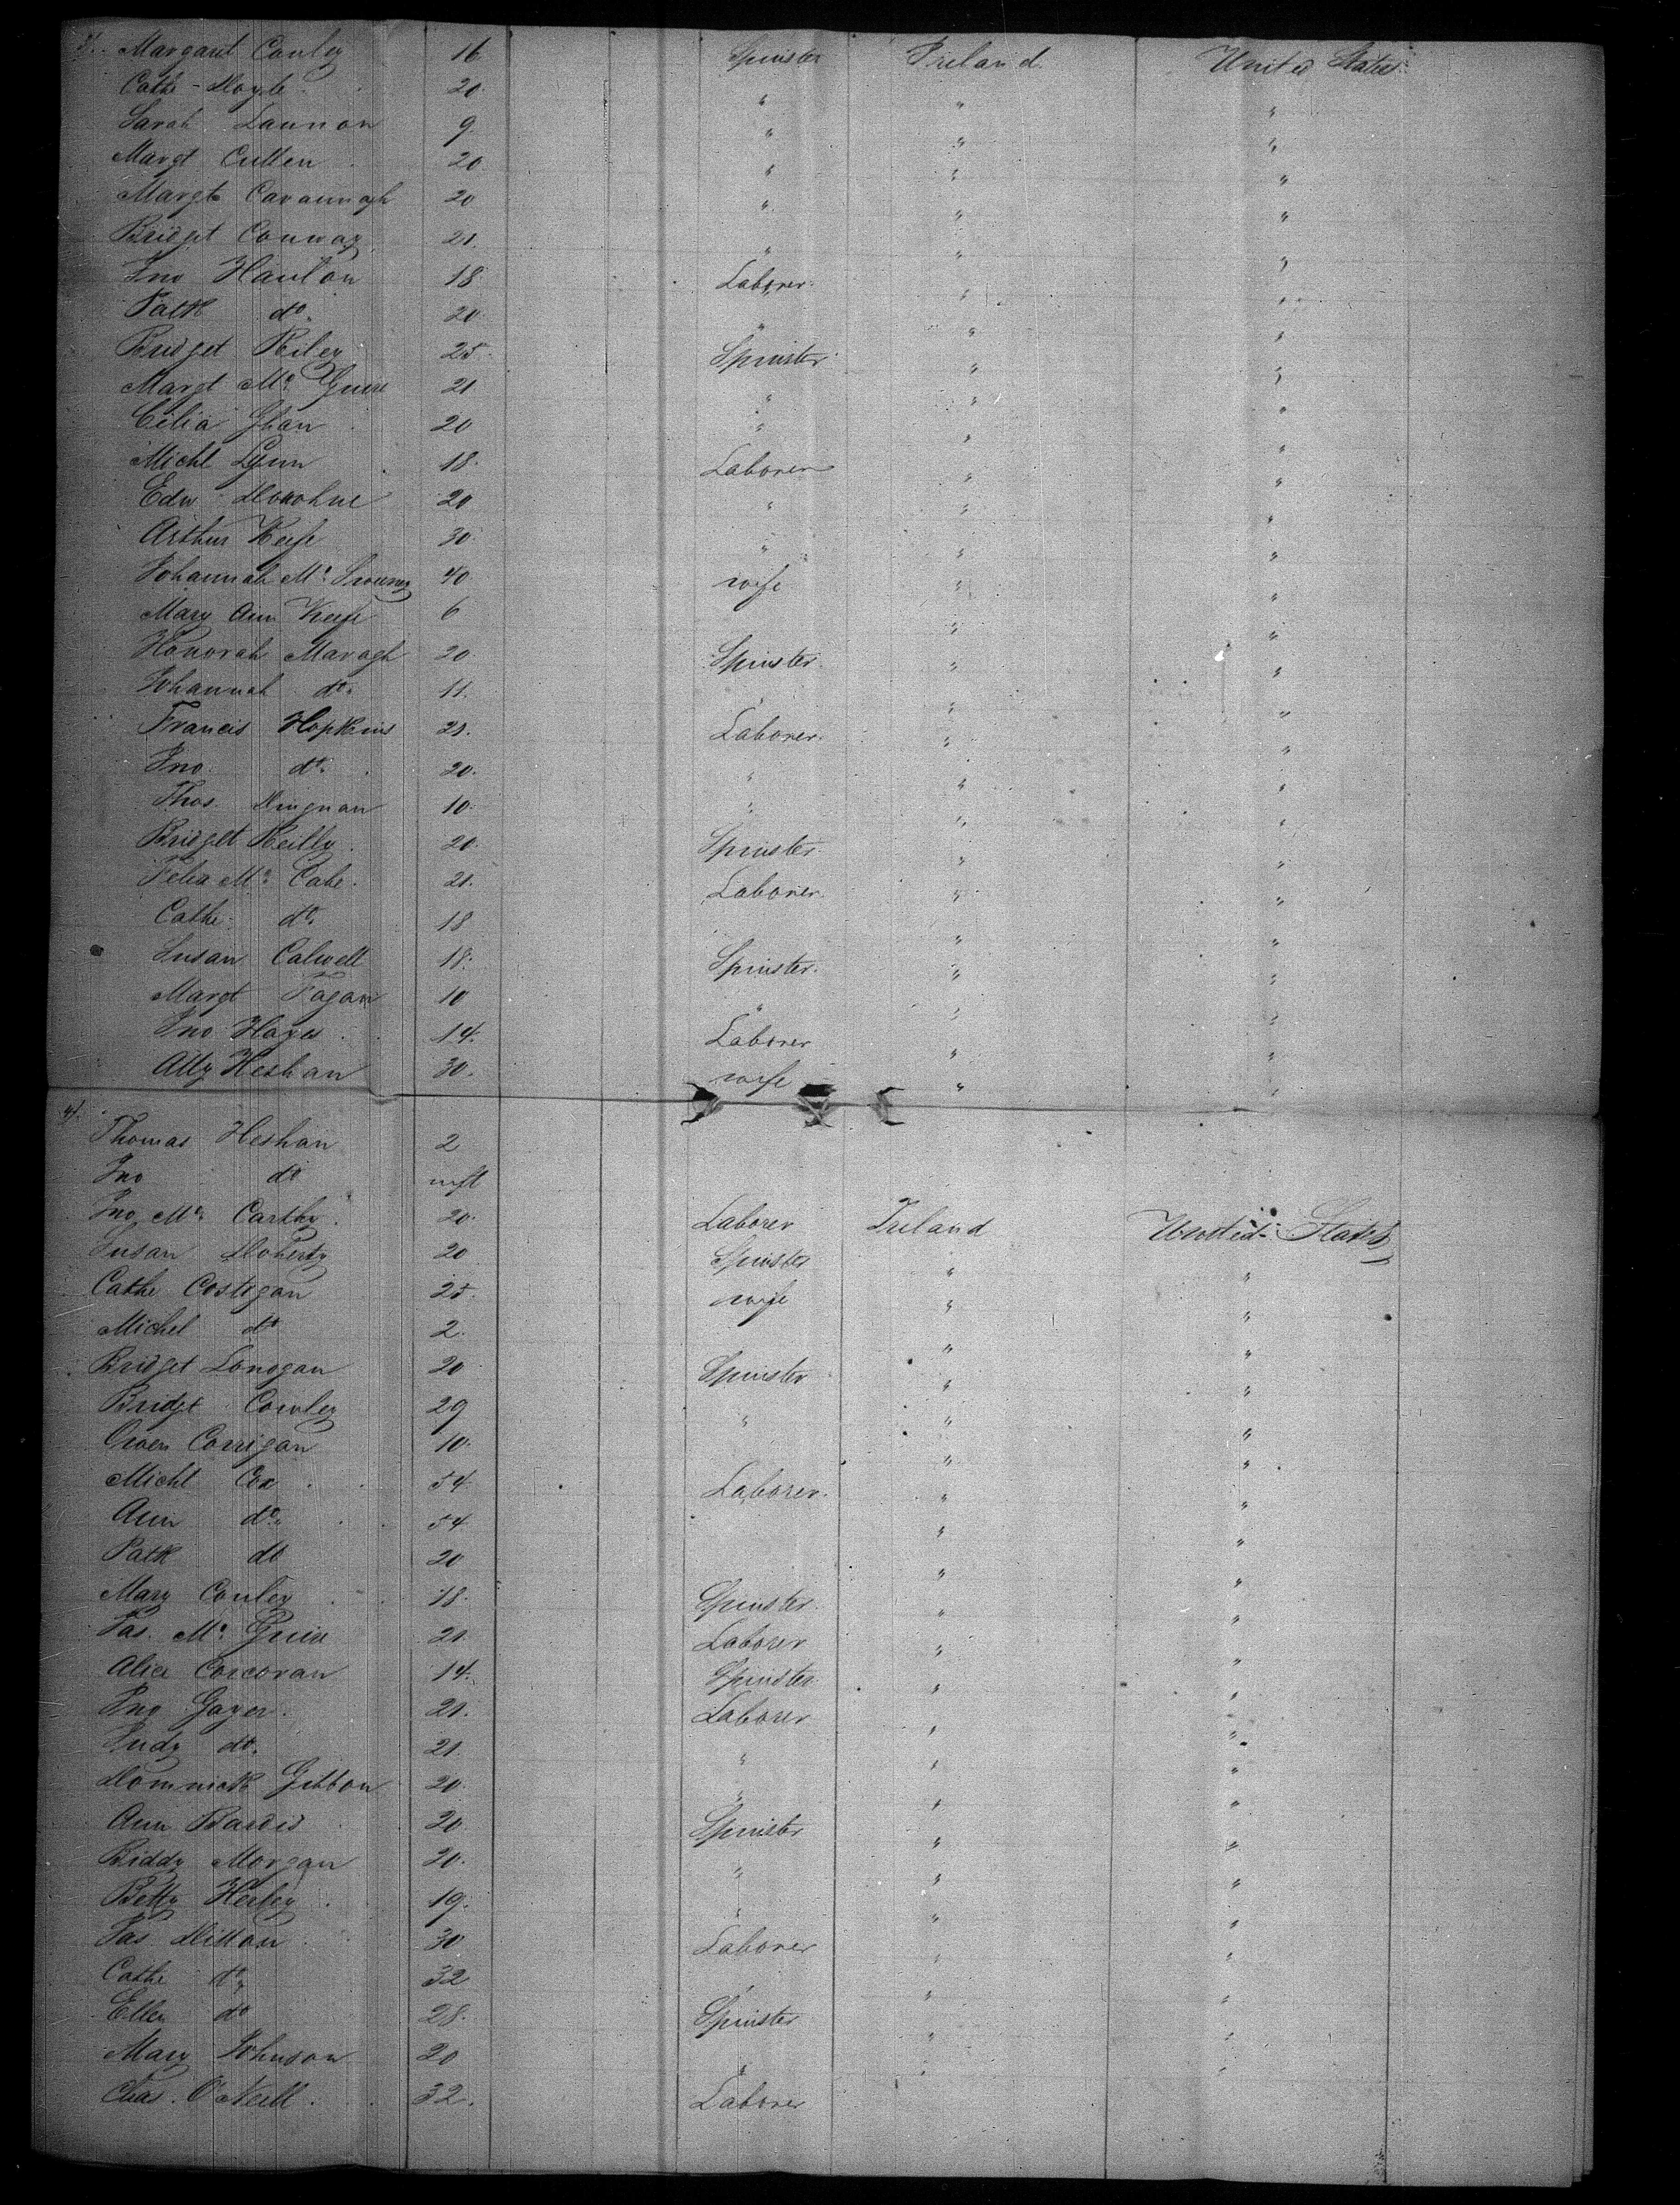 Margaret Conley 16 Spinster Ireland United States
Cathe Doyle 20 " " "
Sarah Lannon 9 " " "
Margt Cullen 20 " " "
Margt Cavannagh 20 " " "
Bridget Conway 21 " " "
Jno Hanlon 18 Laborer " "
Patk do 20 " " "
Bridget Riley 25 Spinster " "
Margt Mc Guire 21 " " "
Celia 20 " " "
Michl Lynn 18 Laborer " "
Edw Donohue 20 " " "
Arthur Keefe 30 " " "
Johannah Mc Sweeney 40 wife " "
Mary Ann Keefe 6 " "
Honorah Maragh 20 Spinster " "
Johannah do 11 " " "
Francis Hopkins 21 Laborer " "
Jno do 20 " " "
Thos Dingnan 10 " " "
Bridget Reilly 20 Spinster " "
Felix Mc Cabe 21 Laborer " "
Cathe do 18 " "
Susan Calwell 18 Spinster " "
Margt Fagan 10 " " "
Jno Hayes 14 Laborer " "
Ally Heshan 30 wife " "
4/ Thomas Heshan 2
Jno do inft
Jno Mc Carthy 20 Laborer Ireland United States
Susan Doherty 20 Spinster " "
Cathe Costogan 25 wife " "
Michel do 2 " "
Bridget Lonogan 20 Spinster " "
Bridgt Conley 29 " " "
Owen Corrigan 10 " "
Michl Cox 54 Laborer " "
Ann do 54 " "
Patk do 20 " "
Mary Conley 18 Spinster " "
Jas. Mc Guire 21 Laborer " "
Alice Corcoran 14 Spinster " "
Jno Gayer 21 Laborer " "
Judy do 21 " " "
Domnick Gibbon 20 " " "
Ann 20 Spinster " "
Biddy Morgan 20 " " "
Betty Herley 19 " " "
Jas Dillon 30 Laborer " "
Cathe do 32 " "
Ellen do 28 Spinster " "
Mary Johnson 20 " " "
Chas. O'Neill 32 Laborer